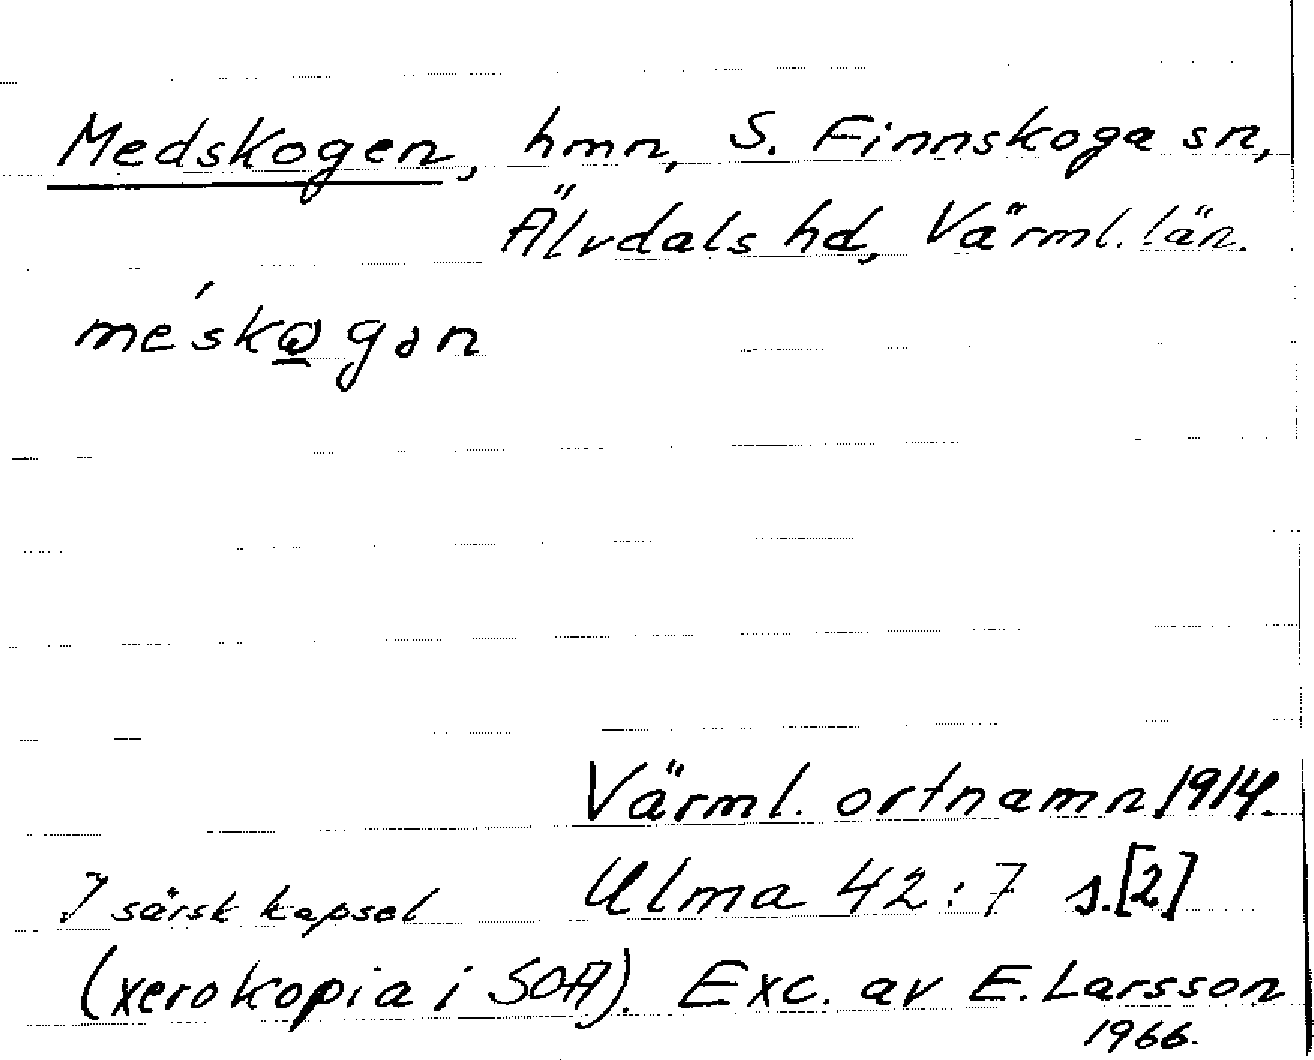 Medskogen, hmn, S. Finnskoga sn,
Älvdals hd, Värml. län.
me´skωgən
Värml. ortnamn 1914.
I särsk kapsel Ulma 42:7 s.[2]
(xerokopia i SOA). Exc. av E. Larsson
1966.